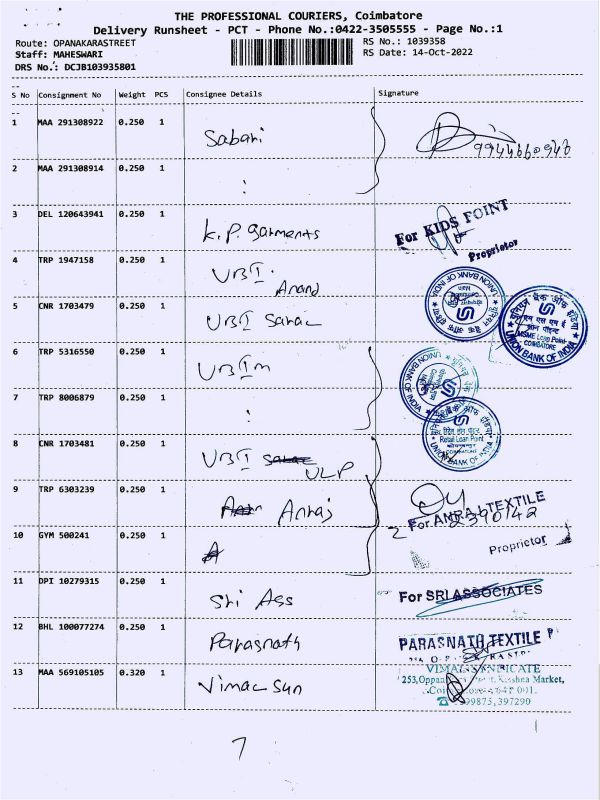 THE PROFESSIONAL COURIERS, Coimbatore
Delivery Runsheet - PCT - Phone No.:0422-3505555 - Page No.:1
Route: OPANAKARASTREET
RS No.: 1039358
Staff: MAHESWARI
RS Date: 14-Oct-2022
DRS No.: DCJB103935801
S No Consignment No Weight PCS Consignee Details Signature
1 MAA 291308922 0.250 1 Sabari 9944660946
2 MAA 291308914 0.250 1 :
3 DEL 120643941 0.250 1 K.P. Garments For KIDS POINT
Proprietor
4 TRP 1947158 0.250 1 UBI.
Anand
UNION BANK OF INDIA
5 CNR 1703479 0.250 1 UBI Sarac
यूनियन बैंक ऑफ इंडिया
MSME Loan Point
COIMBATORE
UNION BANK OF INDIA
6 TRP 5316550 0.250 1 UBI m
UNION BANK OF INDIA
7 TRP 8006879 0.250 1 :
Retail Loan Point
UNION BANK OF INDIA
8 CNR 1703481 0.250 1 UBI
ULP
9 TRP 6303239 0.250 1 Anraj For ANRAJ TEXTILE
10 GYM 500241 0.250 1
Proprietor
11 DPI 10279315 0.250 1 Sri Ass For SRI ASSOCIATES
12 BHL 100077274 0.250 1 Parasnath PARASNATH TEXTILE
13 MAA 569105105 0.320 1 Vimac Sun VIMAL SYNDICATE
253, Krishna Market,
99875, 397290
7